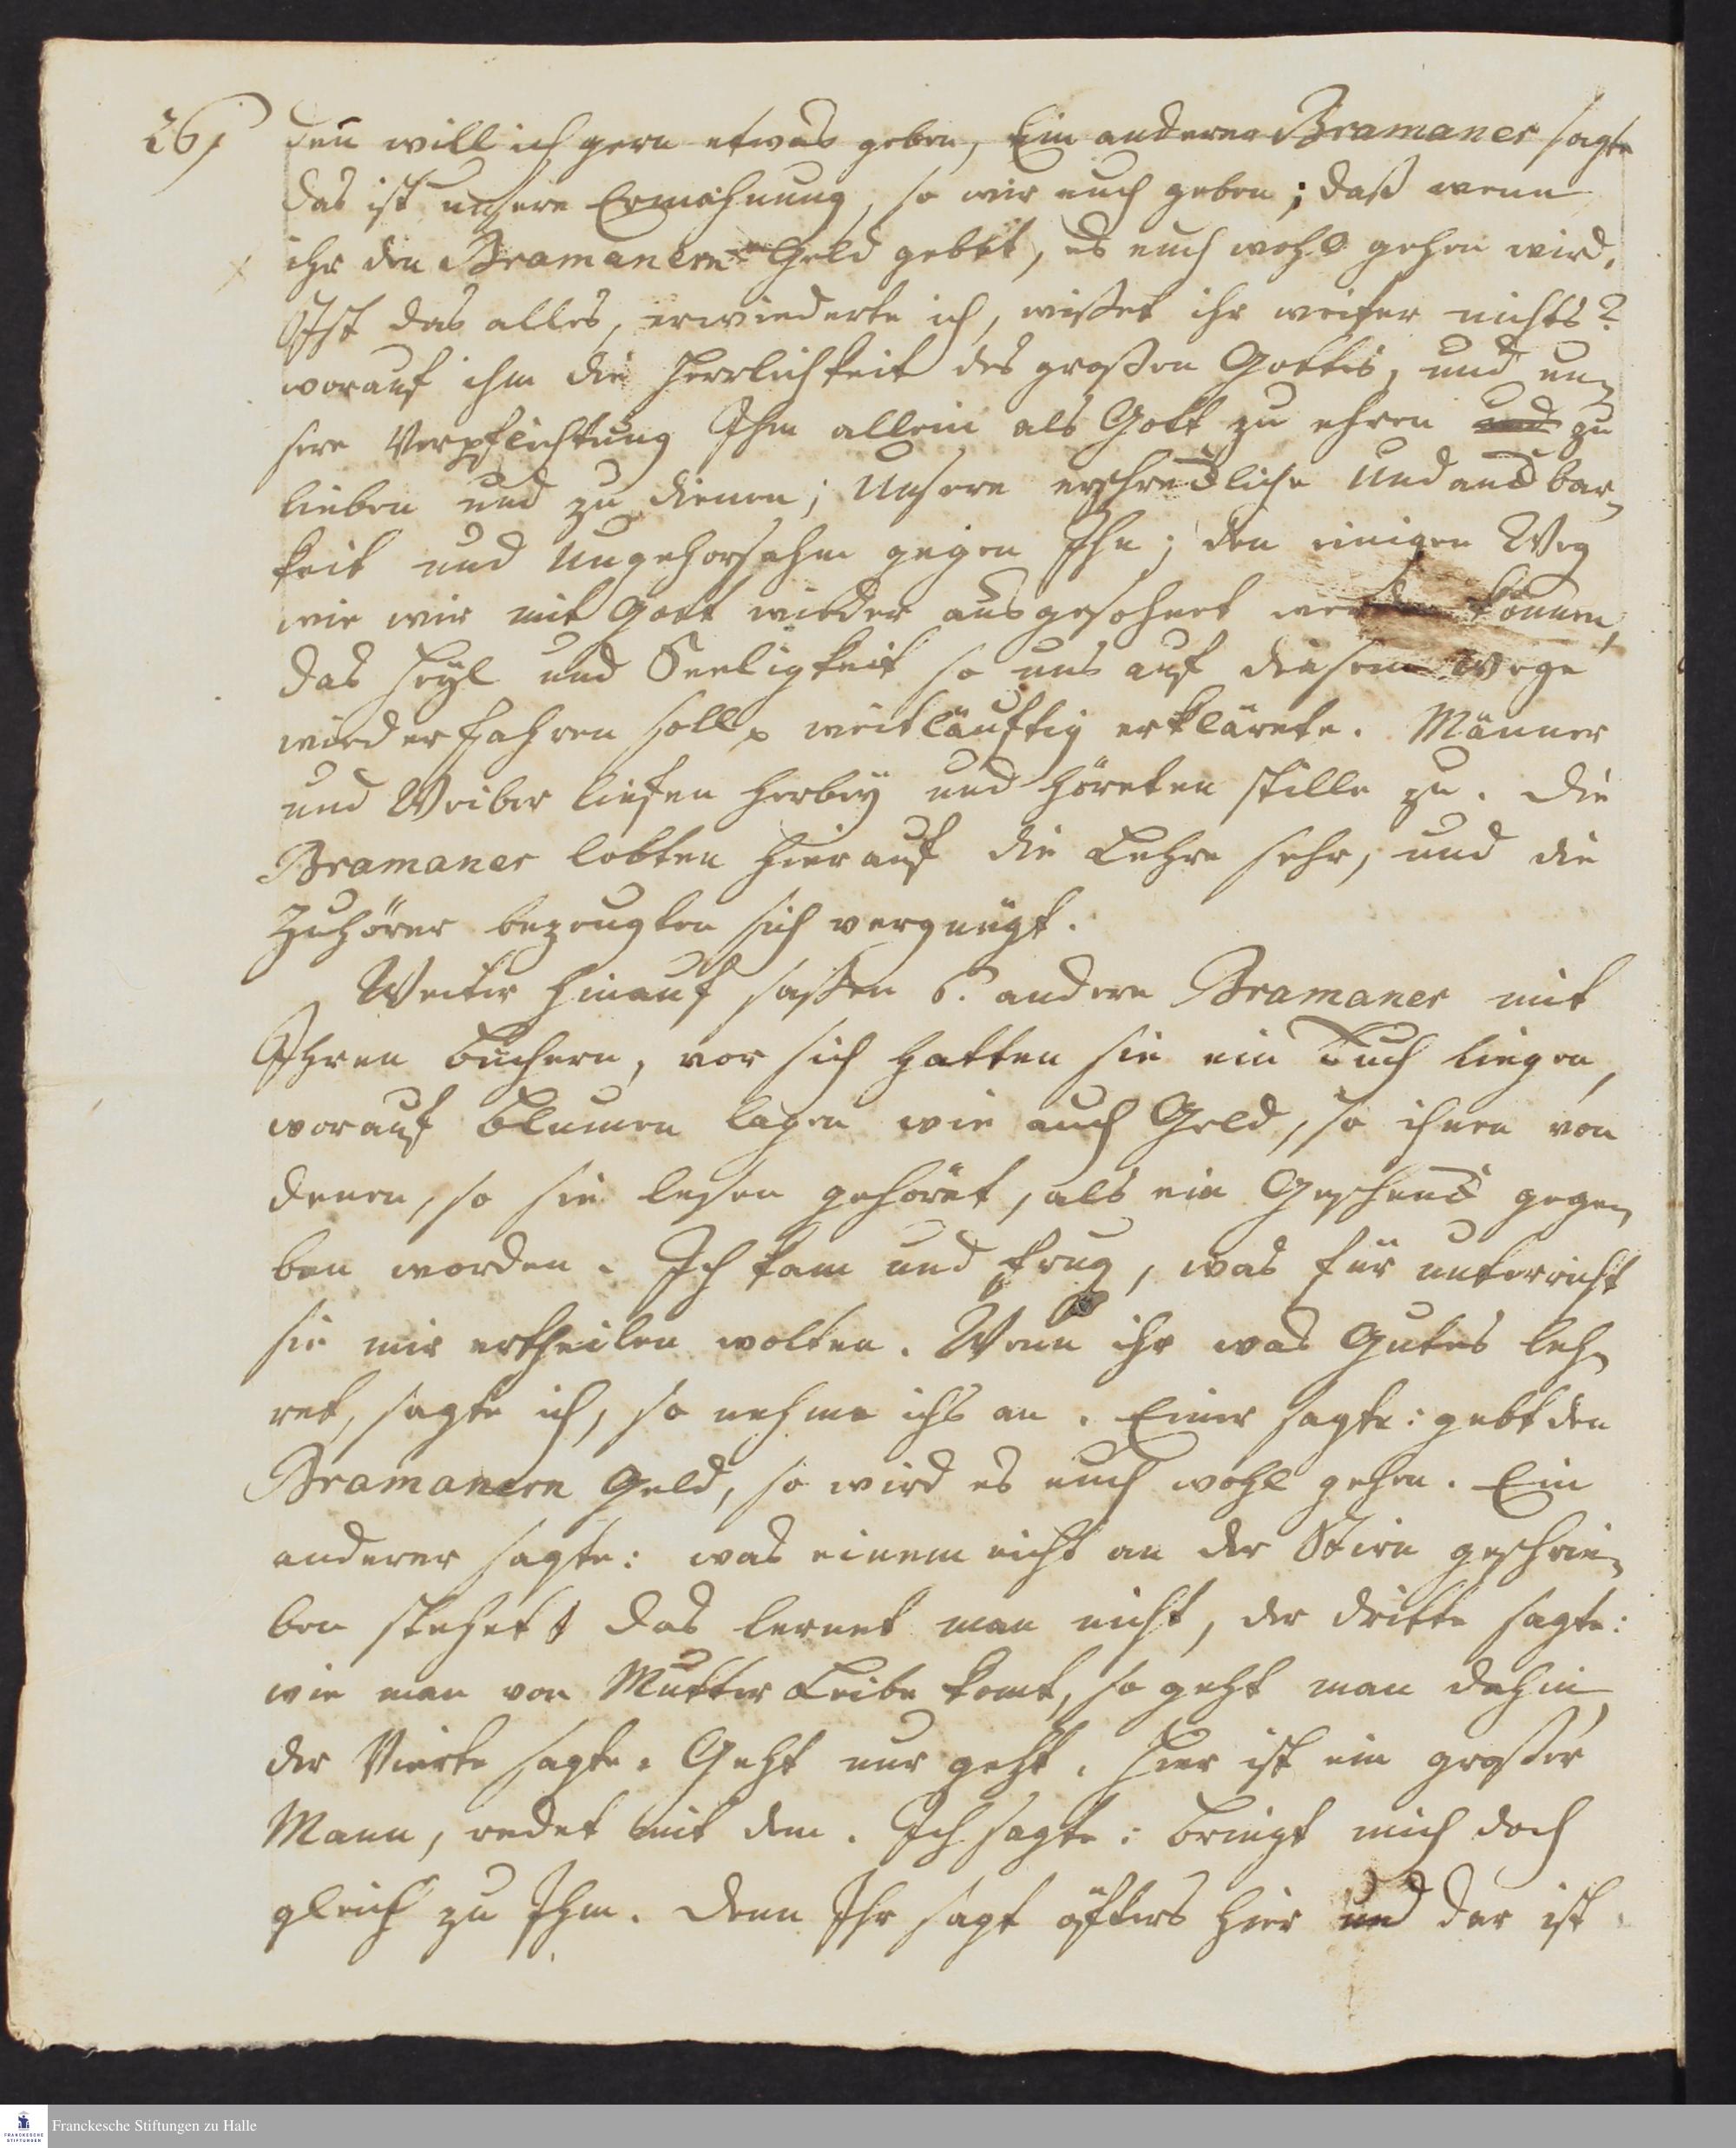 26)
den will ich gern etwas geben, Ein anderer Bramaner sagte
das ist unsere Ermahnung, so wir euch geben; daß wenn
ihr den Bramanern Geld gebet, es euch wohl gehen wird.
Ist das alles, erwiederte ich, wißet ihr weiter nichts?
worauf ihm die Herrlichkeit des großen Gottes, und un¬
sere Verpflichtung Ihm allein als Gott zu ehren und zu
lieben und zu dienen; Unsere erschreckliche Undanckbar¬
keit und Ungehorsahm gegen Ihn; den einigen Weg
wie wir mit Gott wieder ausgesohnet werden können,
das Heyl und Seeligkeit so uns auf diesem Wege
wiederfahren soll weitläuftig erklärete. Männer
und Weiber liefen herbey und höreten stille zu. Die
Bramaner lobten hierauf die Lehre sehr, und die
Zuhörer bezeugten sich vergnügt.
Weiter hinauf saßen 6. andere Bramaner mit
Ihren Büchern, vor sich hatten sie ein Tuch liegen,
worauf Blumen lagen wie auch Geld, so ihnen von
denen, so sie lesen gehöret, als ein Geschenck gege¬
ben worden. Ich kam und frug, was für unterricht
sie mir ertheilen wolten. Wenn ihr was Gutes leh¬
ret, sagte ich, so nehme ichs an. Einer sagte: gebt den
Bramanern Geld, so wird es euch wohl gehen. Ein
anderer sagte: was einem nicht an der Stirn geschrie¬
ben stehet das lernet man nicht, der dritte sagte:
wie man von Mutter Leibe komt, so geht man dahin,
der Vierte sagte. Geht nur geht. Hier ist ein großer
Mann, redet mit dem. Ich sagte: bringt mich doch
gleich zu Ihm. Denn Ihr sagt öfters hier und dar ist
Franckesche Stiftungen zu Halle
FRANCKESCHE
STIFTUNGEN